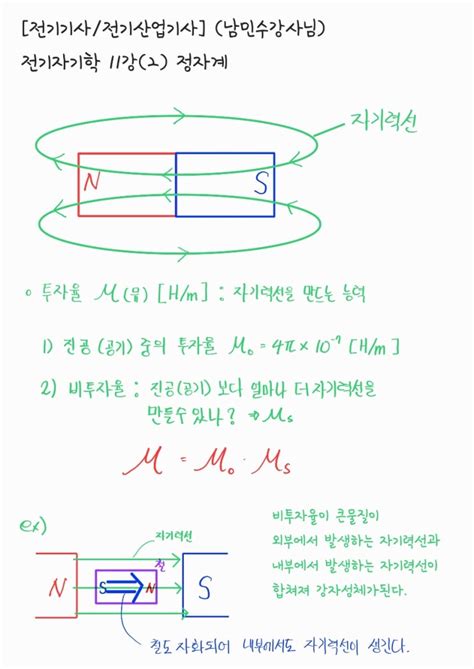 [전기기사/전기산업기사] (남민수강사님)
전기자기학 11강(2) 정자계
자기력선
N
S
○ 투자율 μ(뮤) [H/m] : 자기력선을 만드는 능력
1) 진공(공기) 중의 투자율 μ₀ = 4π × 10⁻⁷ [H/m]
2) 비투자율 : 진공(공기) 보다 얼마나 더 자기력선을
만들 수 있나? ⇒ μs
μ = μ₀ · μs
ex)
자기력선
철
N
S
N
S
비투자율이 큰물질이
외부에서 발생하는 자기력선과
내부에서 발생하는 자기력선이
합쳐져 강자성체가된다.
철도 자화되어 내부에서도 자기력선이 생긴다.